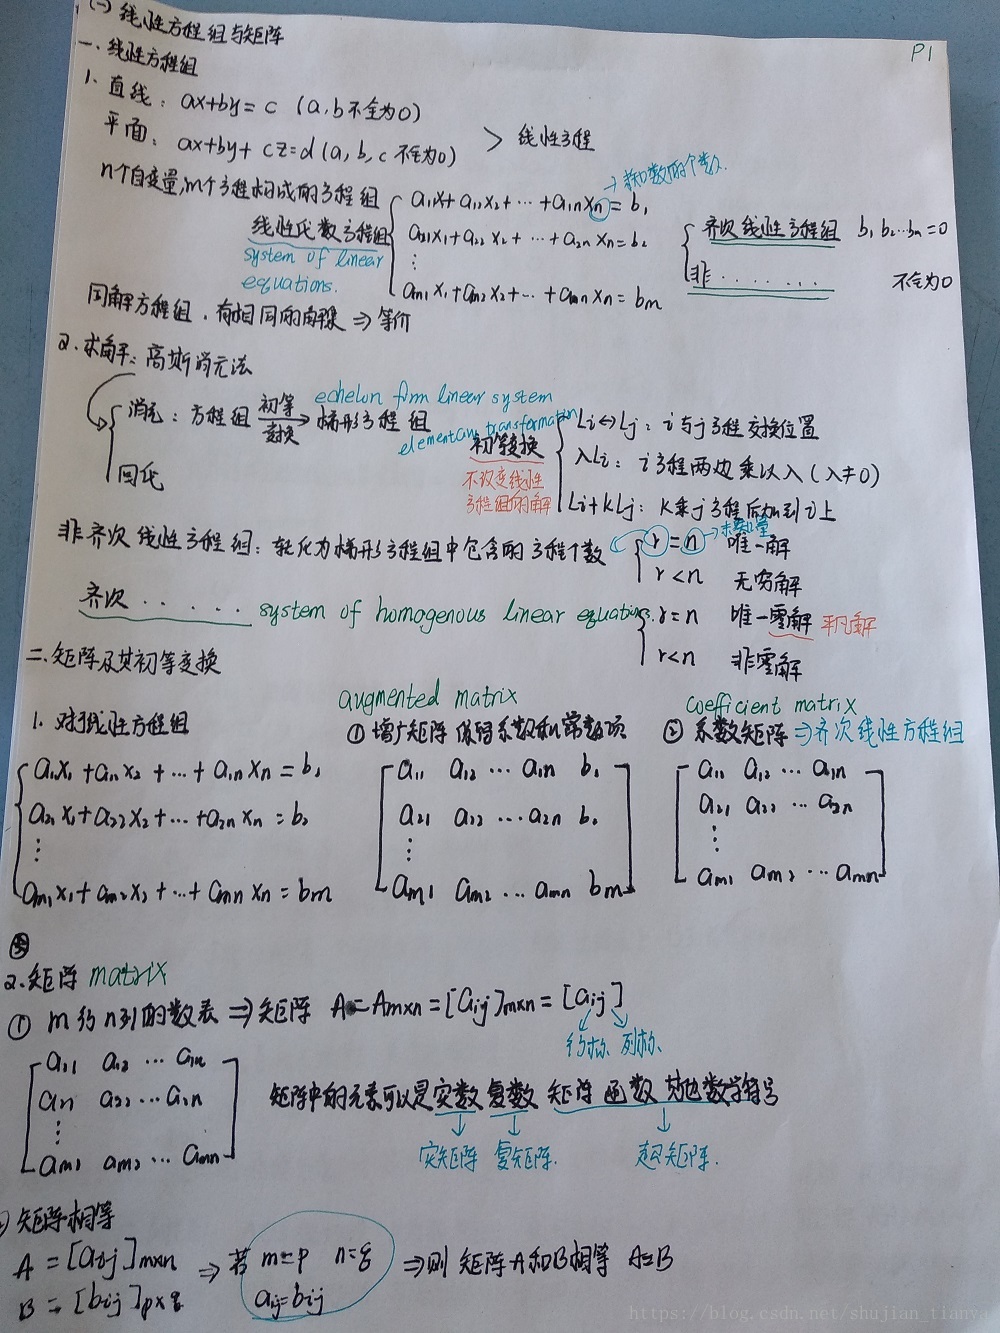 (一) 线性方程组与矩阵
P1
一、线性方程组
1. 直线: ax+by=c (a,b不全为0)
平面: ax+by+cz=d (a,b,c不全为0) > 线性方程
n个自变量,m个方程构成的方程组
线性代数方程组
system of linear
equations.
a₁₁x+a₁₂x₂+…+a₁nxn=b₁ → 未知数的个数
a₂₁x₁+a₂₂x₂+…+a₂nxn=b₂
⋮
am₁x₁+am₂x₂+…+amnxn=bm
齐次线性方程组 b₁b₂…bm=0
非 ...... 不全为0
同解方程组,有相同的解集 ⇒ 等价
2. 求解: 高斯消元法
消元: 方程组 初等变换→ 梯形方程组
echelon form linear system
回代
elementary transformation
初等变换
不改变线性
方程组的解
Li⇔Lj: i与j方程交换位置
λLi: i方程两边乘以λ (λ≠0)
Li+kLj: k乘j方程后加到i上
非齐次线性方程组: 转化为梯形方程组中包含的方程个数 r=n 唯一解
r<n 无穷解
齐次 ..... system of homogenous linear equations. r=n 唯一零解 平凡解
r<n 非零解
二、矩阵及其初等变换
1. 对于线性方程组
a₁x₁+a₁₂x₂+…+a₁nxn=b₁
a₂₁x₁+a₂₂x₂+…+a₂nxn=b₂
⋮
am₁x₁+am₂x₂+…+amnxn=bm
augmented matrix
① 增广矩阵 保留系数和常数项
a₁₁ a₁₂ … a₁n b₁
a₂₁ a₂₂ … a₂n b₂
⋮
am₁ am₂ … amn bm
coefficient matrix
② 系数矩阵 ⇒ 齐次线性方程组
a₁₁ a₁₂ … a₁n
a₂₁ a₂₂ … a₂n
⋮
am₁ am₂ … amn
2. 矩阵 matrix
① m行n列的数表 ⇒ 矩阵 A=Am×n=[aij]m×n=[aij]
行标、列标、
a₁₁ a₁₂ … a₁n
a₂₁ a₂₂ … a₂n
⋮
am₁ am₂ … amn
矩阵中的元素可以是实数 复数 矩阵 函数 其他数学符号
实矩阵 复矩阵. 超矩阵.
矩阵相等
A=[aij]m×n
B=[bij]p×q
⇒ 若 m=p n=q
aij=bij
⇒ 则 矩阵A和B相等 A=B
https://blog.csdn.net/shujian_tianya